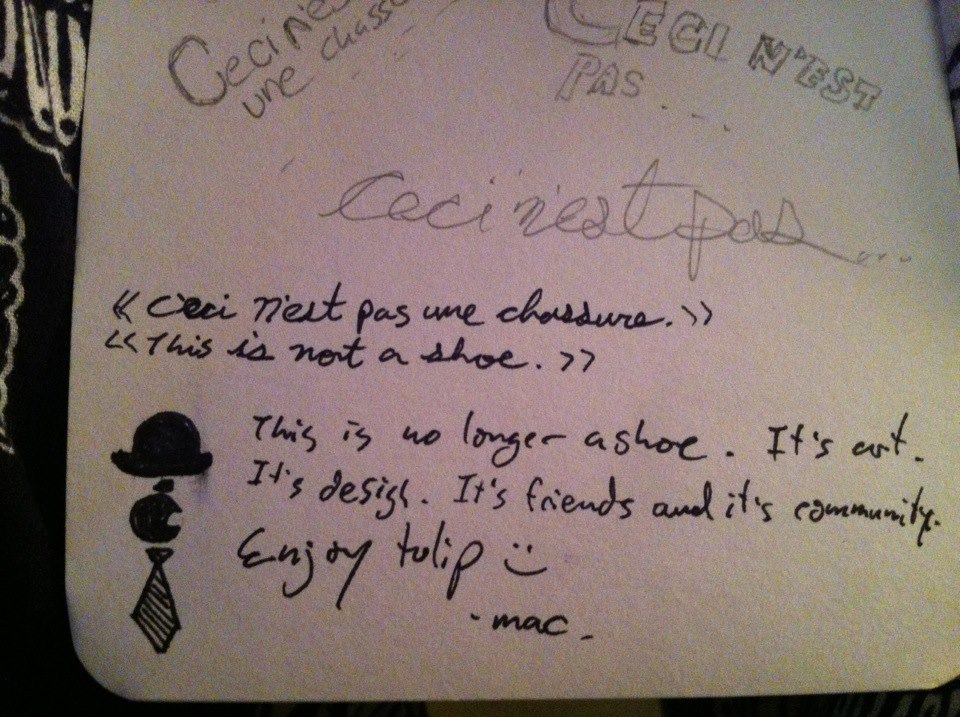 Ceci n'es
une chass
CECI N'EST
PAS....
Ceci n'est pas...
<< Ceci n'est pas une chassure. >>
<< This is not a shoe. >>
This is no longer a shoe. It's art.
It's design. It's friends and it's community.
Enjoy tulip :)
- mac.